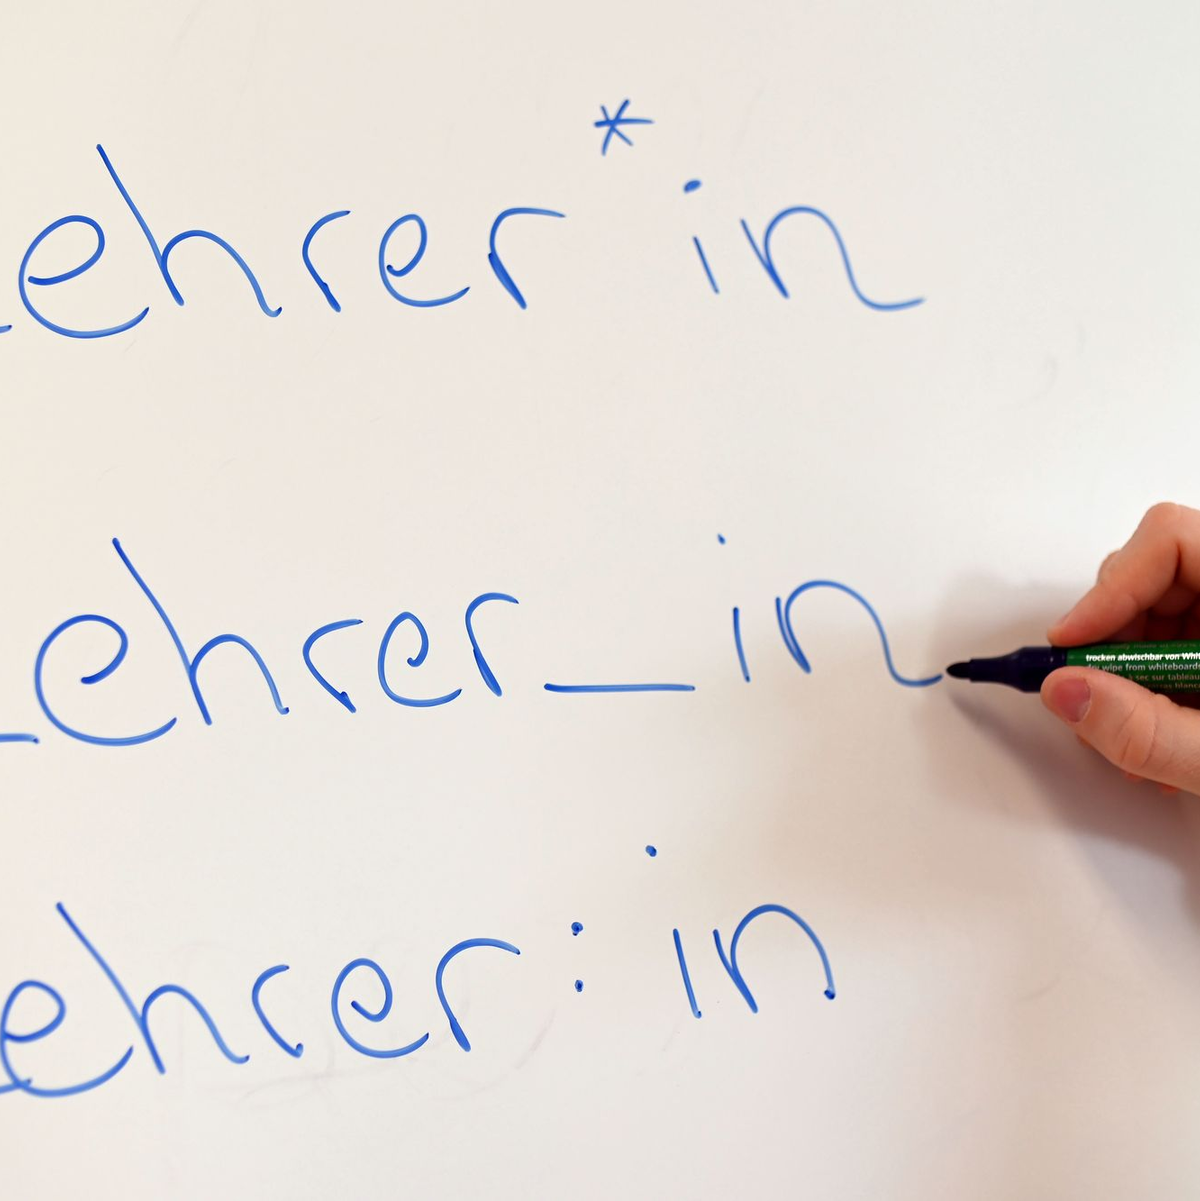 Lehrer*in
Lehrer_in
Lehrer:in
trocken abwischbar von Whit
dry wipe from whiteboards
à sec sur tableau